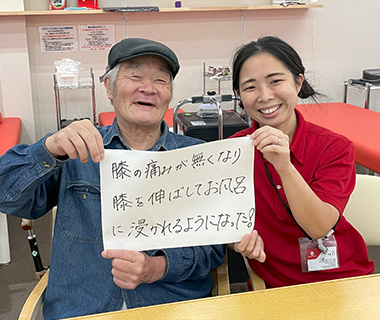 膝の痛みが無くなり
膝を伸ばしてお風呂
に浸かれるようになった!